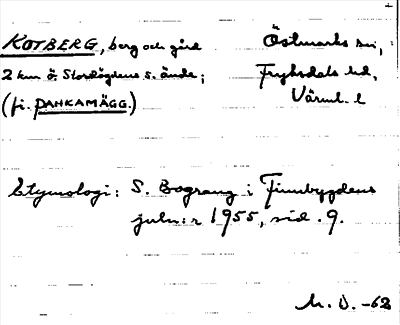 KOTBERG, berg och gård
Östmarks sn,
2 km ö. Stordögdens s. ände;
Fryksdals hd,
(fi. PANKAMÄGG.)
Värml. l
Etymologi: S. Bograng i Finnbygdens
juln:r 1955, sid. 9.
M. O. -62